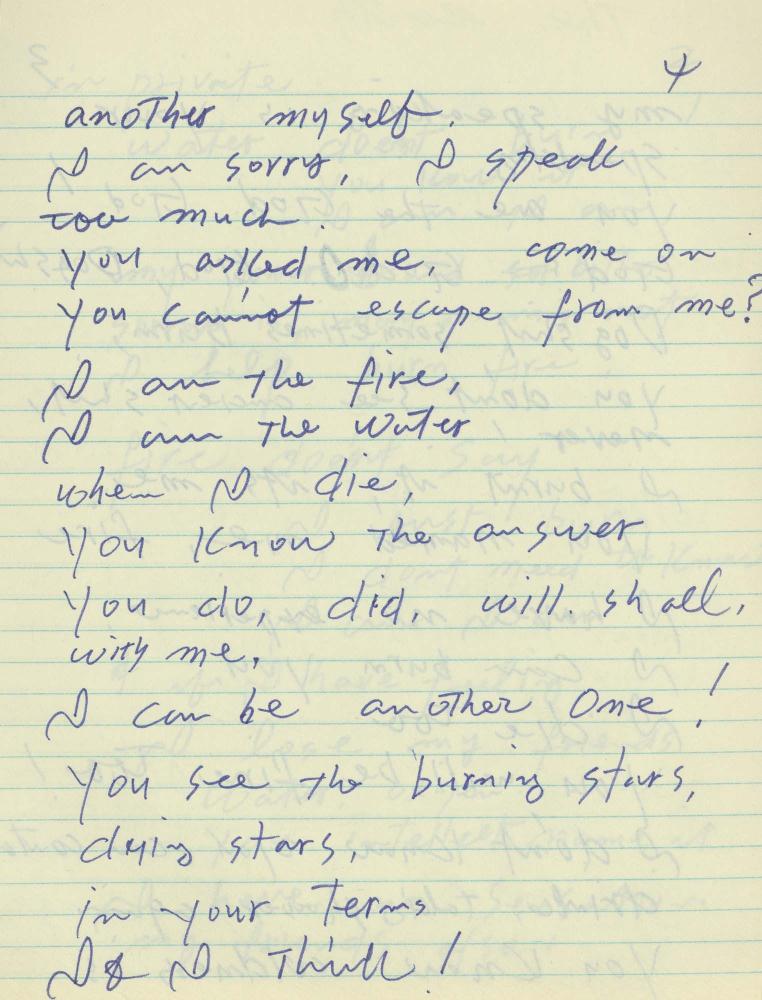 4
another myself.
I am sorry, I speak
too much.
You asked me, come on
You cannot escape from me?
I am the fire,
I am the water
when I die,
You know the answer
You do, did, will. shall,
with me.
I can be another One!
You see the burning stars,
dying stars,
in your Terms
I think!